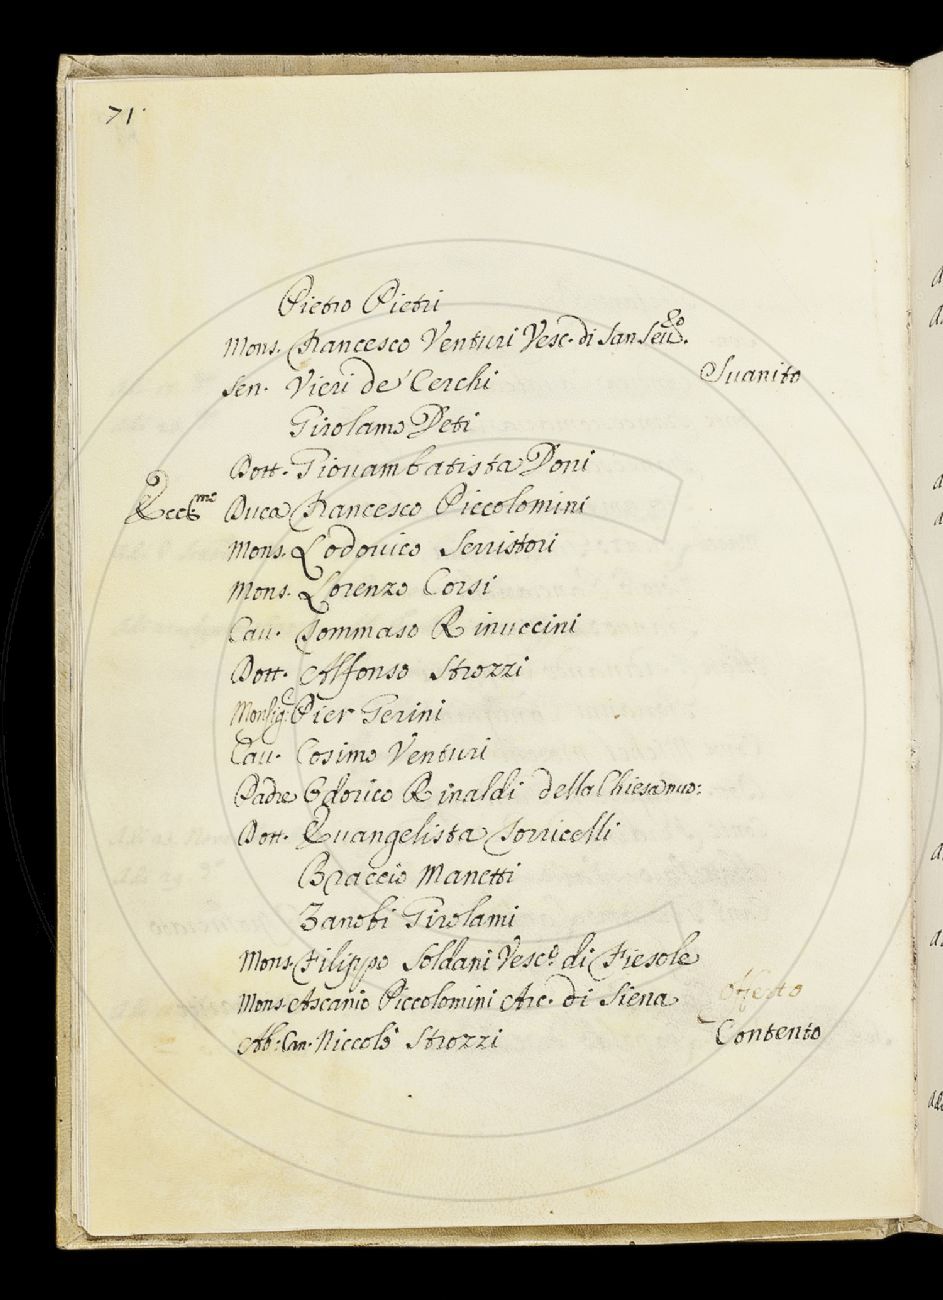 71.
Pietro Pietri
Mons. Francesco Venturi Vesc. di San Seu.ro
Sen. Vieri de' Cerchi Suanito
Girolamo Deti
Dott. Giouambatista Doni
Ecc.mo Duca Francesco Piccolomini
Mons. Lodouico Serristori
Mons. Lorenzo Corsi
Cau. Tommaso Rinuccini
Dott. Alfonso Strozzi
Monsig. Pier Gerini
Cau. Cosimo Venturi
Padre Odorico Rinaldi della Chiesa nuo:
Dott. Euangelista Torricelli
Braccio Manetti
Zanobi Girolami
Mons. Filippo Soldani Vesc.o di Fiesole
Mons. Ascanio Piccolomini Arc. di Siena Offerto
Ab: Can. Niccolò Strozzi Contento